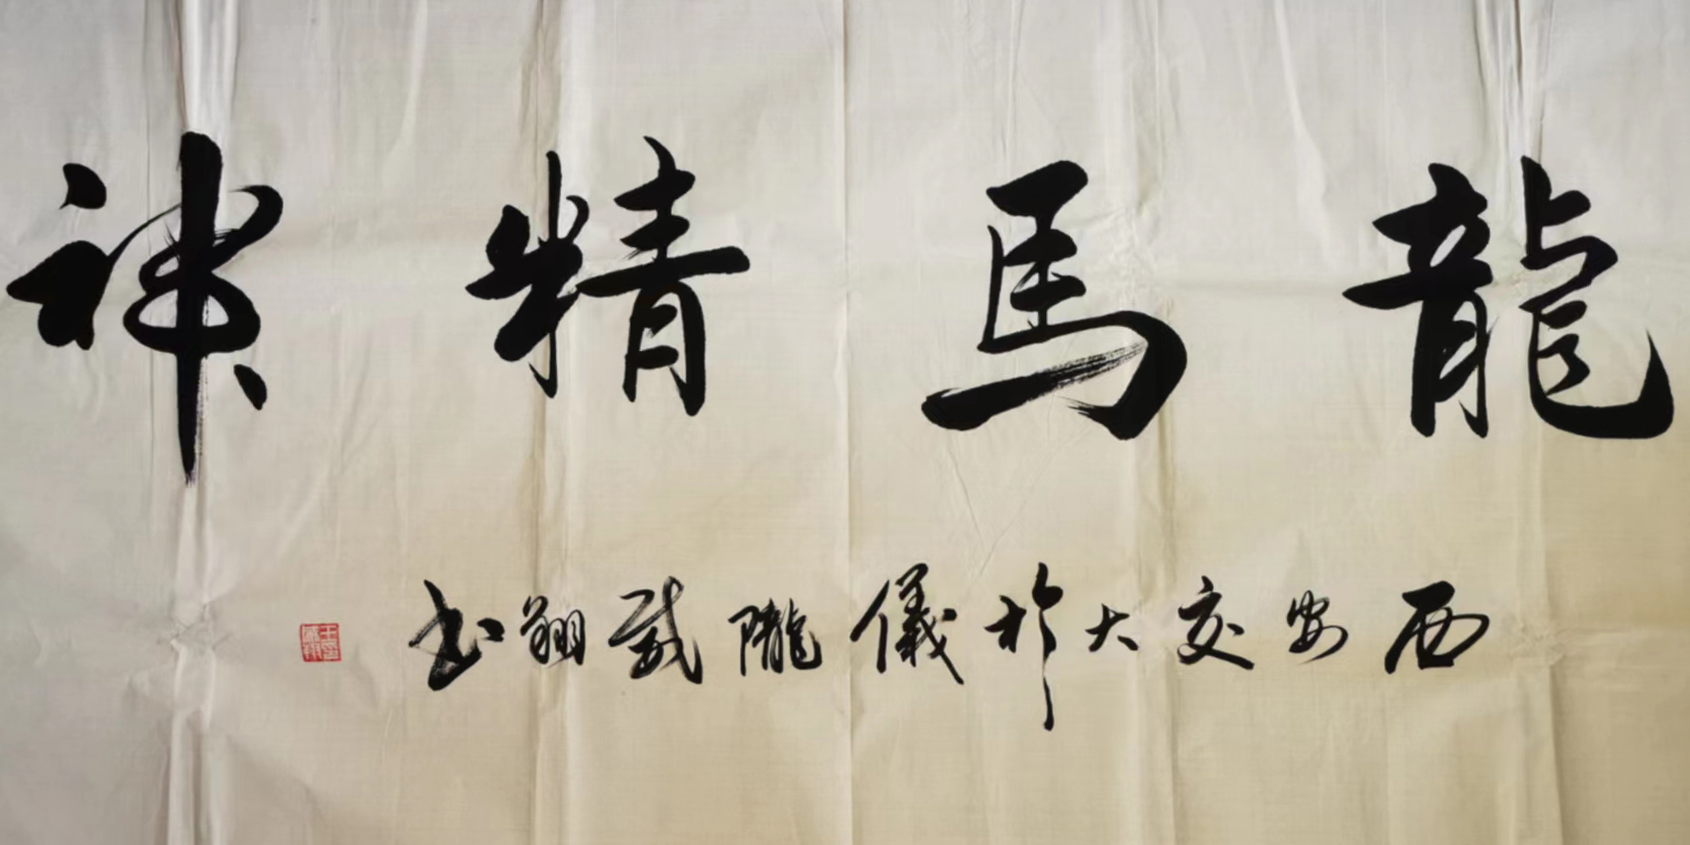 龍馬精神
西安交大於儀隴威翔書